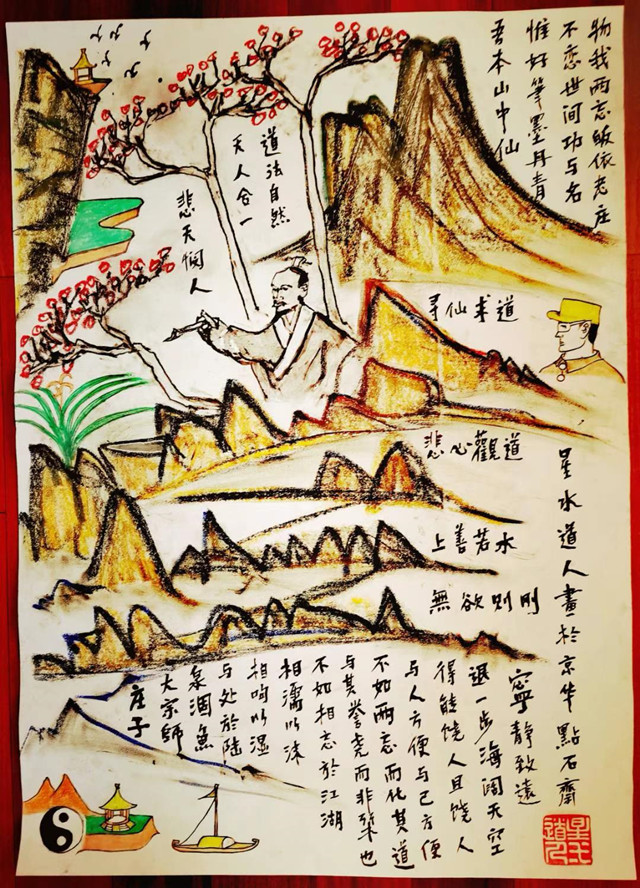 吾本山中仙
惟好筆墨丹青
不恋世间功与名
物我两忘皈依老庄
悲天悯人
天人合一
道法自然
寻仙求道
悲心觀道
上善若水
無欲则刚
庄子
大宗師
泉涸魚
与处於陆
相呴以湿
相濡以沫
不如相忘於江湖
与其誉尧而非桀也
不如两忘而化其道
与人方便与己方便
得能饶人且饶人
退一步海阔天空
寧静致遠
星水道人畫於京华點石齋